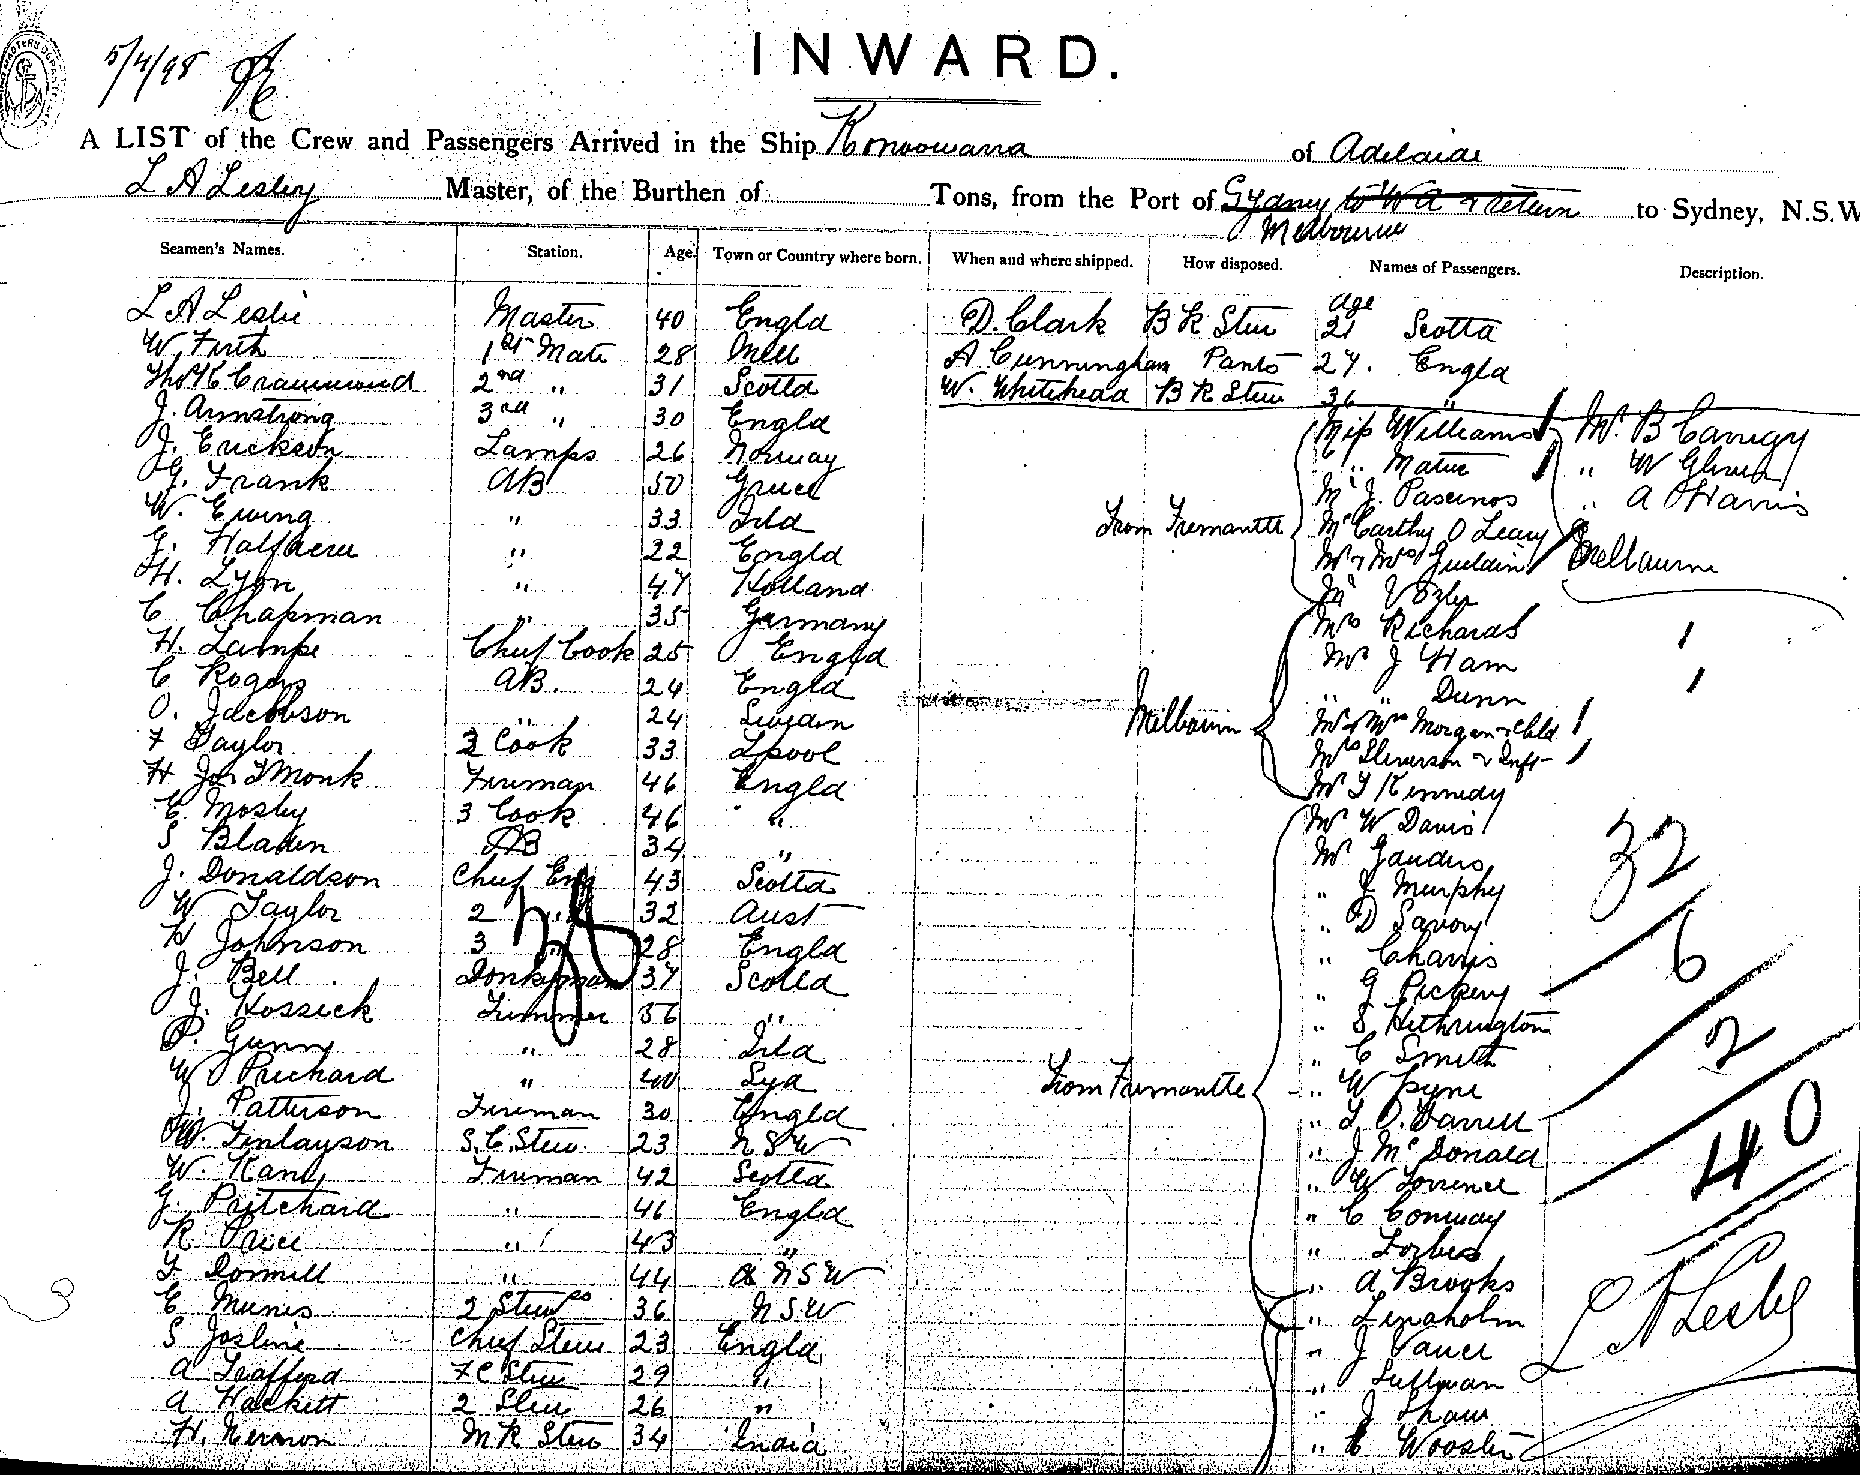 5/4/98
INWARD.
A LIST of the Crew and Passengers Arrived in the Ship Konoowarra of Adelaide
L A Lesley Master, of the Burthen of Tons, from the Port of Sydney to W A & return to Sydney, N.S.W
Melbourne
Seamen's Names. Station. Age. Town or Country where born. When and where shipped. How disposed. Names of Passengers. Description.
age
L A Leslie Master 40 Engld D. Clark B R Stew 21 Scotld
W. Firth 1st Mate 28 Mell A Cunningham Pants 27. Engld
2nd " 31 Scotld W. Whitehead B R Stew 36 "
J. Armstrong 3rd " 30 Engld Miss Williams Mr. B Carrigy
J. Erickson Lamps 26 Norway " Matue " W Glover
G. Frank AB 50 Greece Mr J. " A Harris
W. Ewing " 33 Irld From Fremantle McCarthy O Leary
G. Halfacre " 22 Engld Mr & Mrs Melbourne
H. Lyon " 47 Holland
C Chapman " 35 Germany Mrs Richards
H. Lampe Chief Cook 25 Engld Mr J Ham
C Rogers AB. 24 Engld " " Dunn
O. Jacobson " 24 Sweden Melbourne Mr & Mrs Morgan & Child
F Taylor 2 Cook 33 Lpool Mrs Steverson & Inft
H Jos T Monk Fireman 46 Engld Mr T Kennedy
E. Mosley 3 Cook 46 " Mr W Davis
S Bladen AB 34 " Mr 32
J. Donaldson Chief Eng 43 Scotld " J Murphy
W Taylor 2 " 32 Aust " D Savoy
H Johnson 3 " 28 Engld " C Harris 6
J. Bell Donkeyman 37 Scotld " G Pickery
J. Hossick Trimmer 56 " " S Hethrington
P. Gunny " 28 Irld " C Smith 2
W Prichard " 40 Syd From Fremantle " W Pyne
J. Patterson Fireman 30 Engld " T O. Farrell 40
W. Finlayson S. C. Stew. 23 N S W " J McDonald
W. Kane Fireman 42 Scotld " W Torrence
G. Pritchard " 46 Engld " C Conway
R Price " 43 " " Forbes
44 N S W " A Brooks
E Munis 2 Stewess 36 N S W " Lindholm
S Josline Chief Stew 23 Engld " J Vance L A Lesley
A Trafford F C Stew 29 " "
A Hackett 2 Stew 26 " " J Shaw
H. Vernon M R Stew 34 India " C Wooster